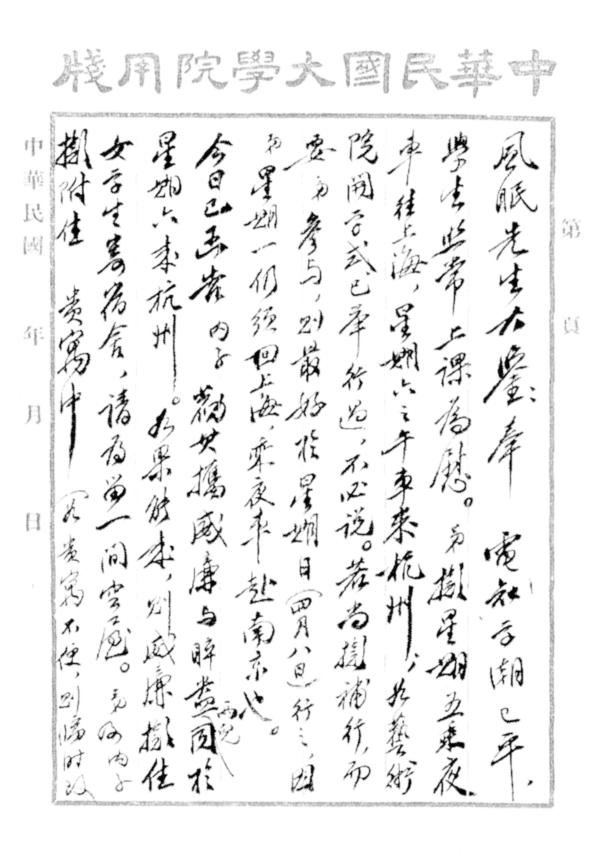 中華民國大學院用牋
第　頁
風眠先生大鑒：奉　電，知學潮已平，
學生照常上課為慰。弟擬星期五乘夜
車往上海，星期六之午車來杭州，如藝術
院開學式已舉行過，不必說。若尚擬補行，而
要弟參与，則最好於星期日（四月八日）行之，因
弟星期一仍須回上海，乘夜車赴南京也。
今日已函告內子，勸其攜威廉与睟盎兩兒同於
星期六來杭州。如果能來，則威廉擬住
女學生寄宿舍，請為留一間空屋。弟與內子
擬附住　貴寓中（若貴寓不便，則臨時改
中華民國　年　月　日